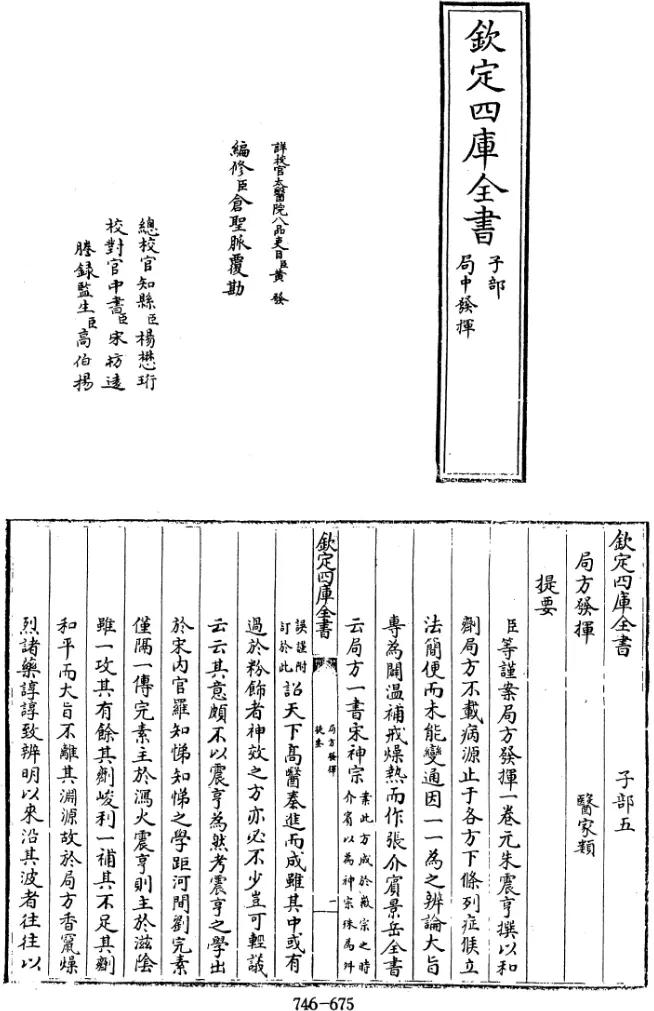 欽定四庫全書
子部
局中發揮
詳校官太醫院八品吏目臣黃發
編修臣倉聖脈覆勘
總校官知縣臣楊懋珩
校對官中書臣宋枋遠
謄錄監生臣高伯揚
欽定四庫全書 子部五
局方發揮 醫家類
提要
臣等謹案局方發揮一卷元朱震亨撰以和
劑局方不載病源止于各方下條列症候立
法簡便而未能變通因一一為之辨論大旨
專為闢溫補戒燥熱而作張介賓景岳全書
云局方一書宋神宗
案此方成於徽宗之時
介賓以為神宗殊為舛
欽定四庫全書
局方發揮
提要
一
誤謹附
訂於此
詔天下高醫奏進而成雖其中或有
過於粉飾者神效之方亦必不少豈可輕議
云云其意頗不以震亨為然考震亨之學出
於宋內官羅知悌知悌之學距河間劉完素
僅隔一傳完素主於瀉火震亨則主於滋陰
雖一攻其有餘其劑峻利一補其不足其劑
和平而大旨不離其淵源故於局方香竄燥
烈諸藥諄諄致辨明以來沿其波者往往以
746-675